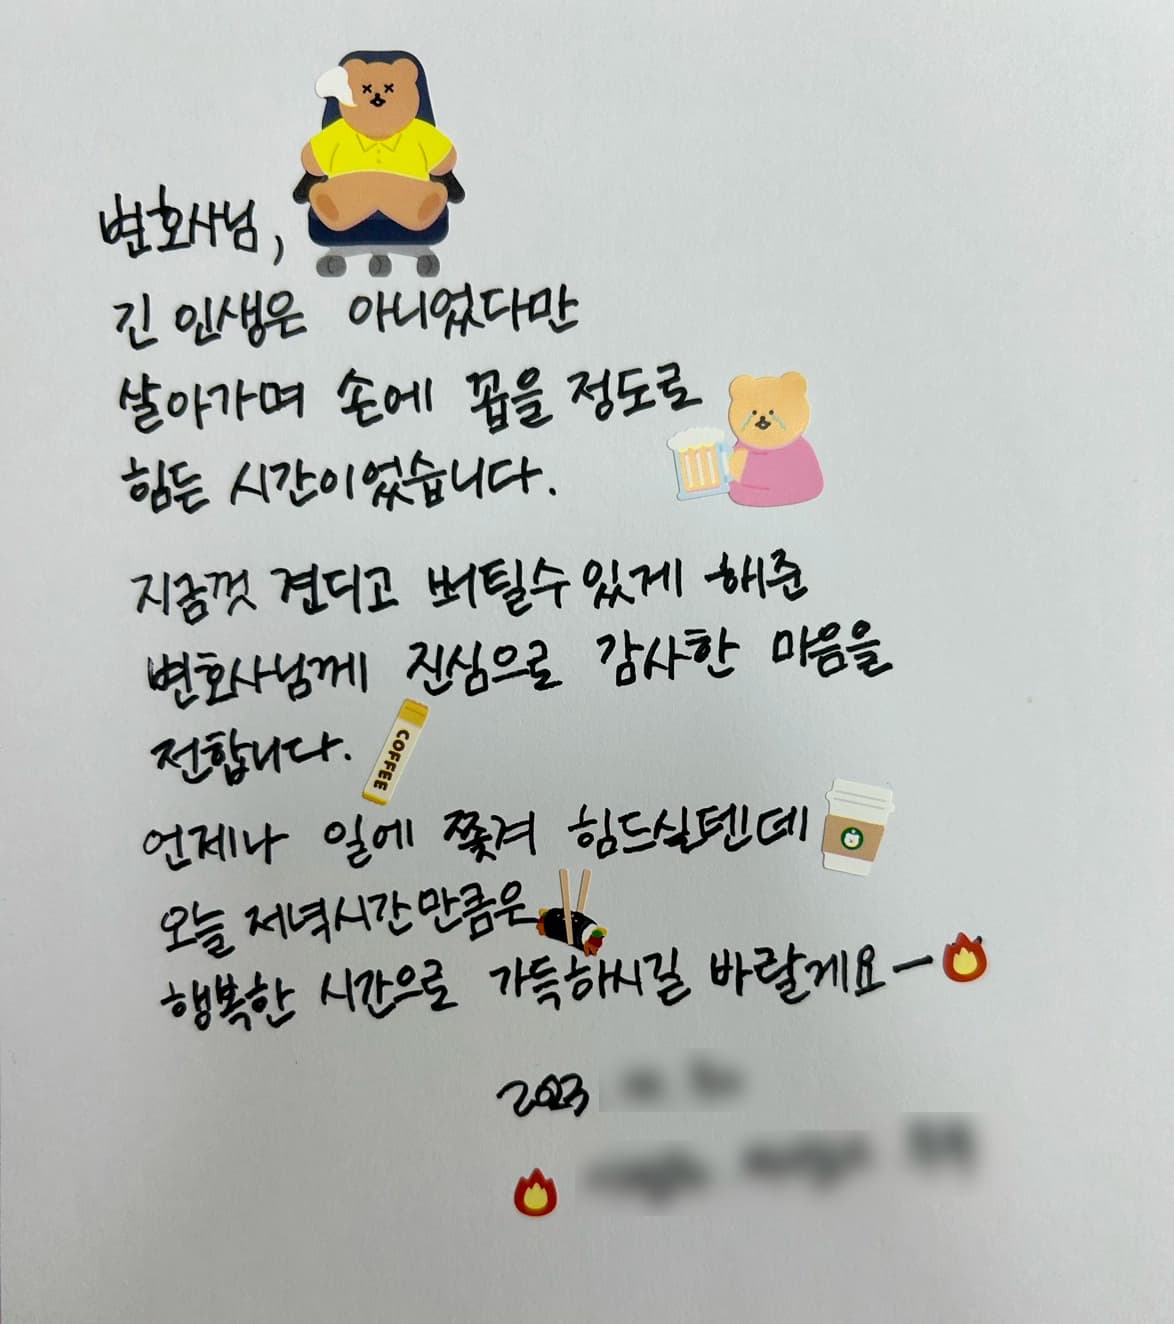 변호사님,
긴 인생은 아니었다만
살아가며 손에 꼽을 정도로
힘든 시간이었습니다.
지금껏 견디고 버틸수있게 해준
변호사님께 진심으로 감사한 마음을
전합니다.
COFFEE
언제나 일에 쫓겨 힘드실텐데
오늘 저녁시간만큼은
행복한 시간으로 가득하시길 바랄게요ㅡ
2023